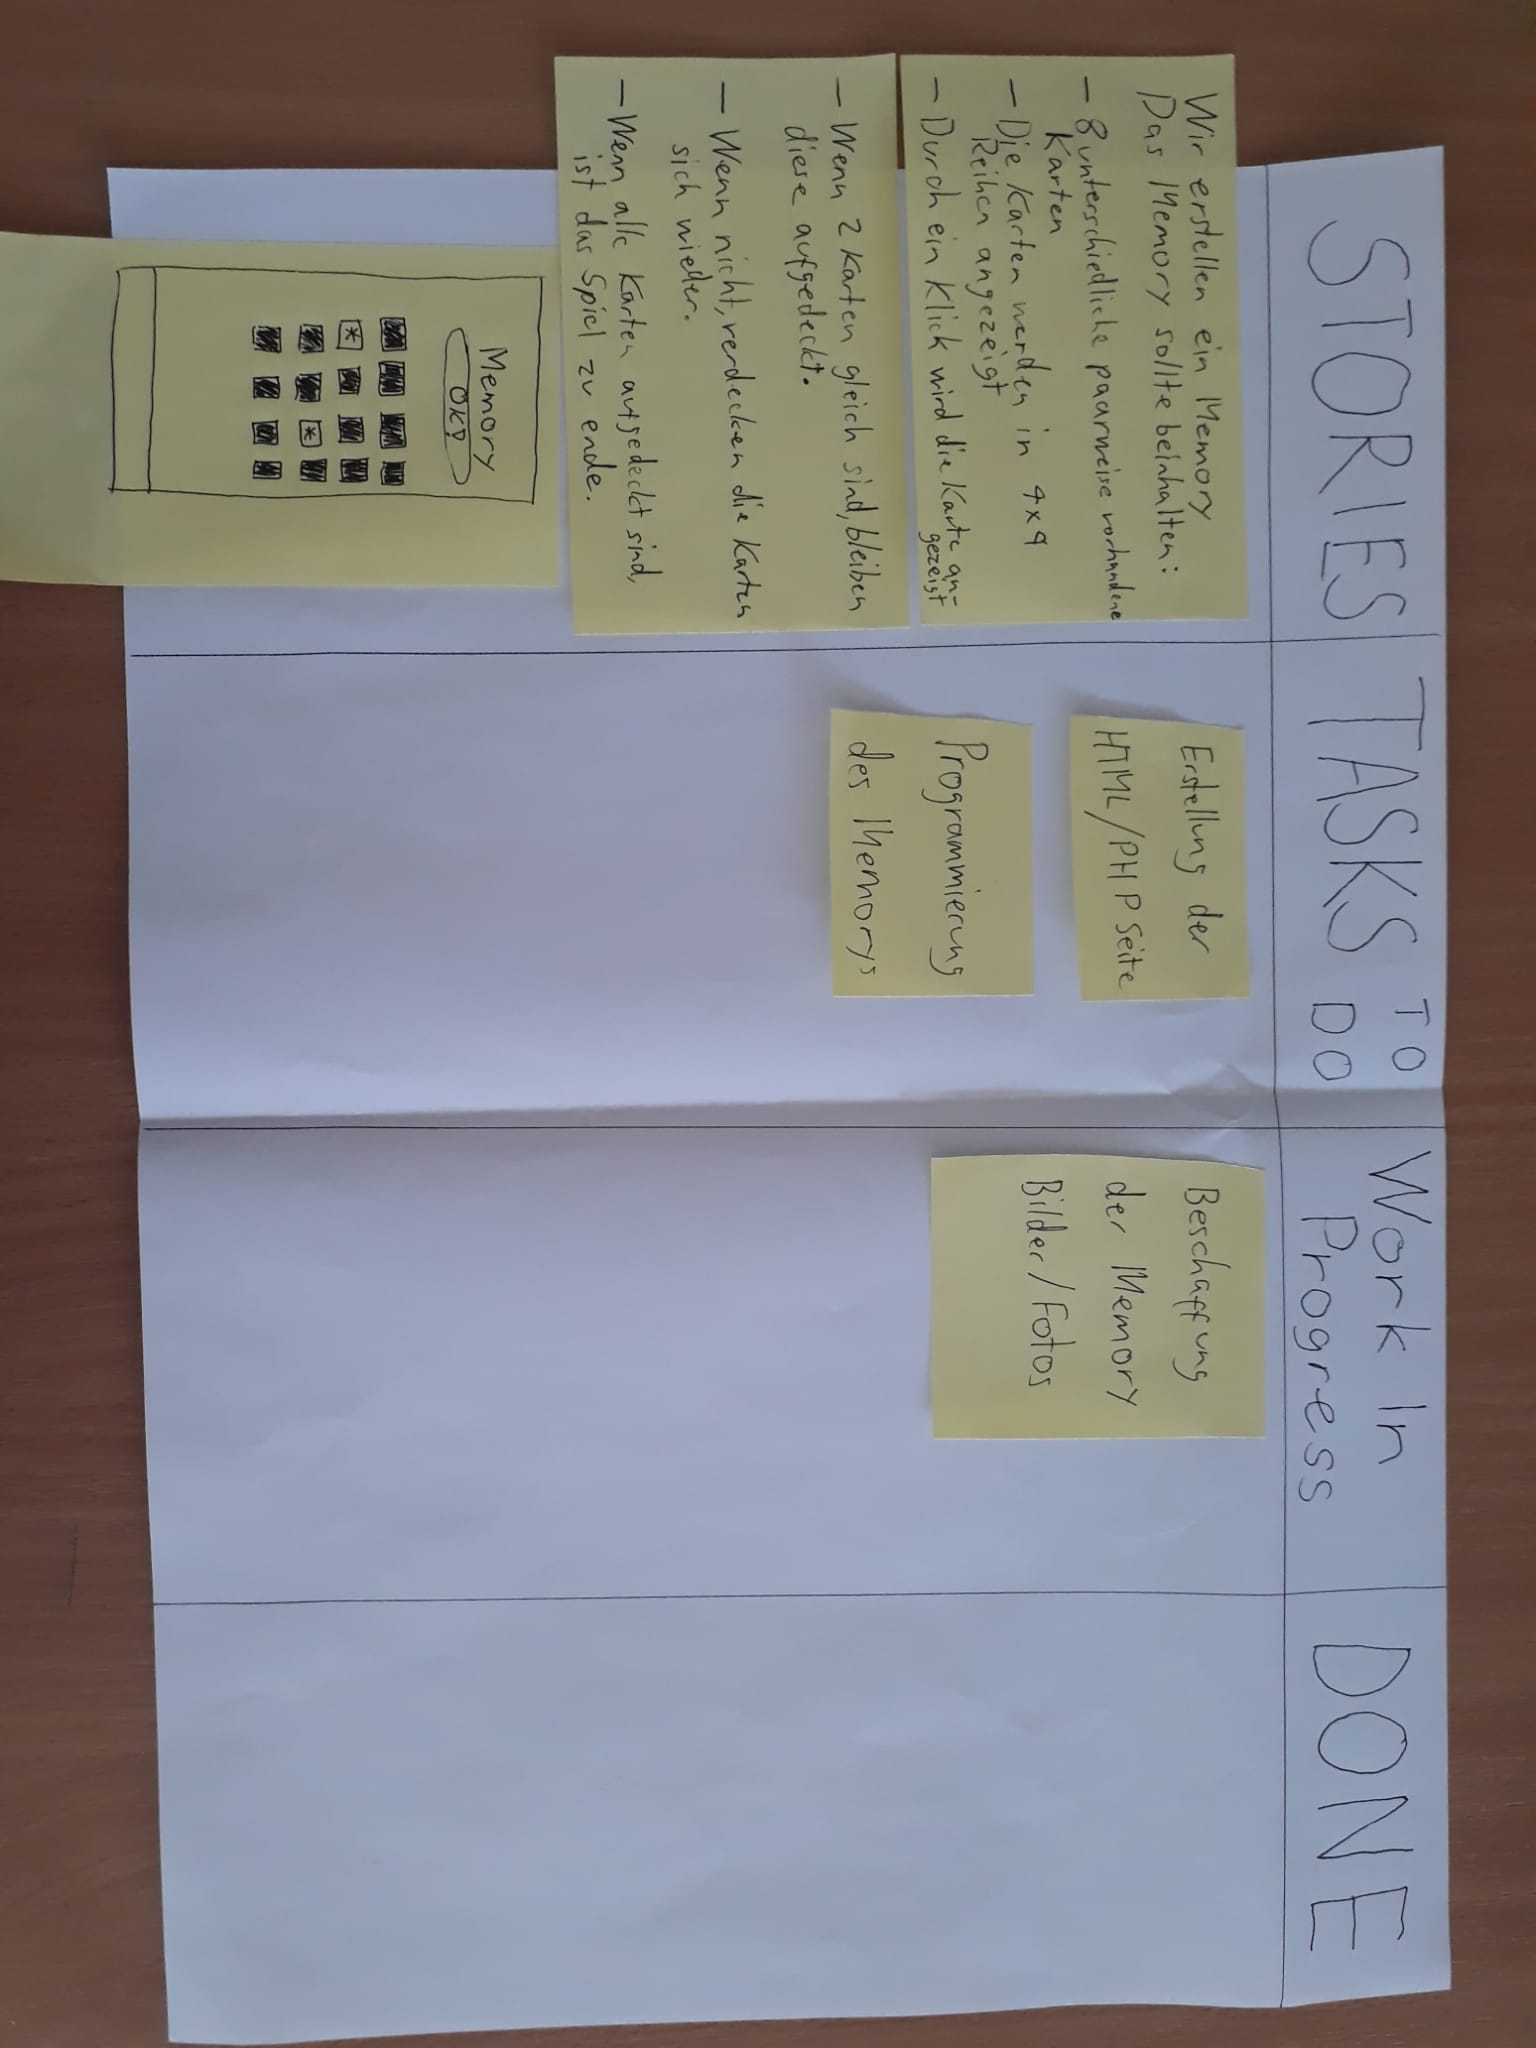 STORIES
TASKS TO DO
Work In Progress
DONE
Wir erstellen ein Memory
Das Memory sollte beinhalten:
- 8 unterschiedliche paarweise vorhandene
Karten
- Die Karten werden in 4x4
Reihen angezeigt
- Durch ein Klick wird die Karte an-
gezeigt
- Wenn 2 Karten gleich sind, bleiben
diese aufgedeckt.
- Wenn nicht, verdecken die Karten
sich wieder.
- Wenn alle Karten aufgedeckt sind,
ist das Spiel zu ende.
Memory
OK!
Erstellung der
HTML/PHP Seite
Programmierung
des Memorys
Beschaffung
der Memory
Bilder/Fotos